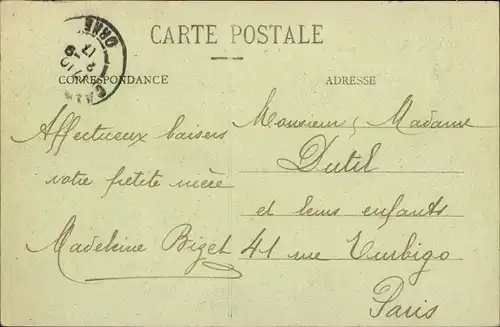 CARTE POSTALE
ORNE
17 2
CORRESPONDANCE
ADRESSE
Affectueux baisers
votre petite nièce
Madeleine Bizet
Monsieur, Madame
Dutil
et leurs enfants
41 rue Turbigo
Paris